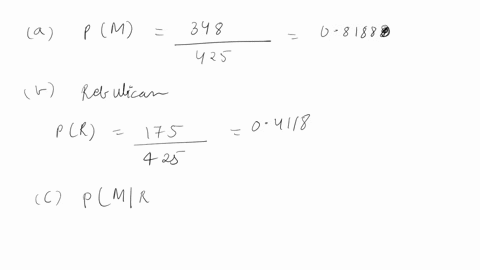 (a) P(M) = 348/425 = 0.8188
(b) Rebulican
P(R) = 175/425 = 0.4118
(c) P(M|R